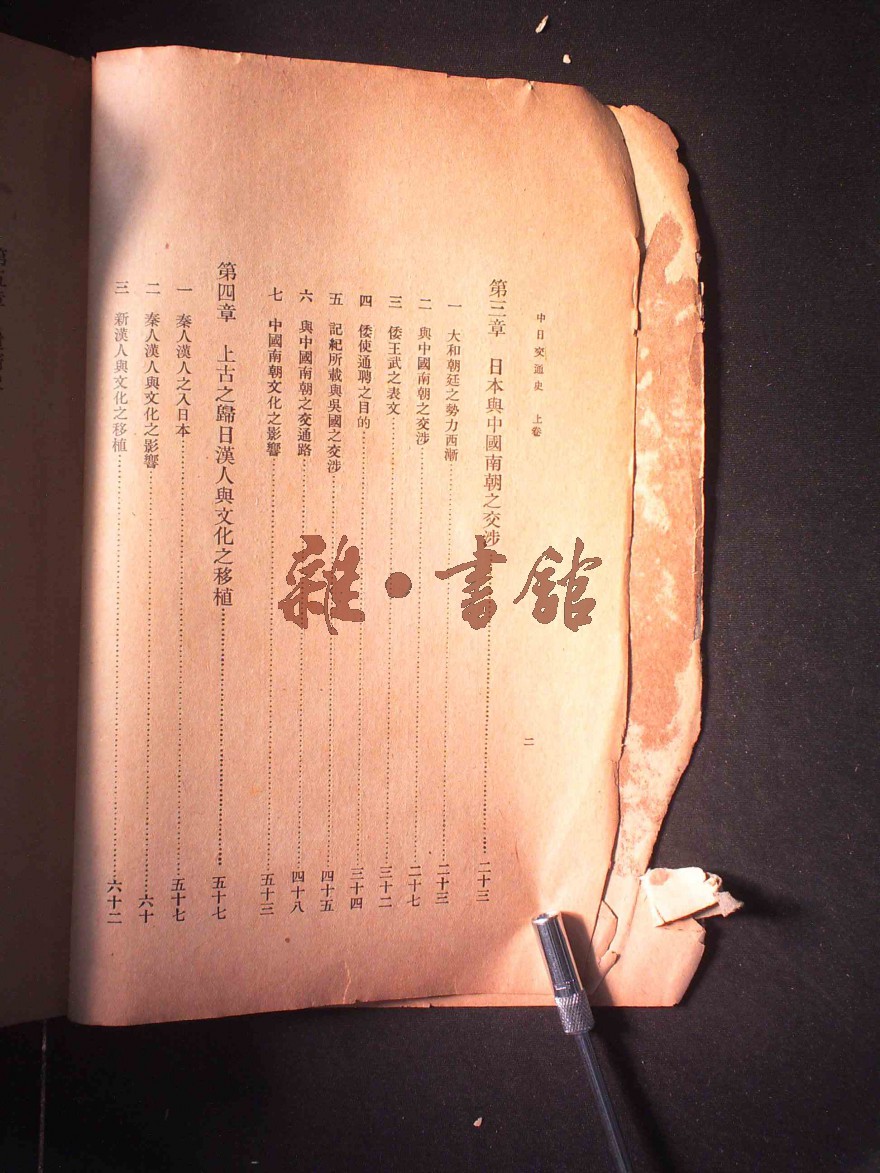 中日交通史 上卷
二
第三章 日本與中國南朝之交涉……二十三
一 大和朝廷之勢力西漸……二十三
二 與中國南朝之交涉……二十七
三 倭王武之表文……三十二
四 倭使通聘之目的……三十四
五 記紀所載與吳國之交涉……四十五
六 與中國南朝之交通路……四十八
七 中國南朝文化之影響……五十三
第四章 上古之歸日漢人與文化之移植……五十七
一 秦人漢人之入日本……五十七
二 秦人漢人與文化之影響……六十
三 新漢人與文化之移植……六十二
雜·書館